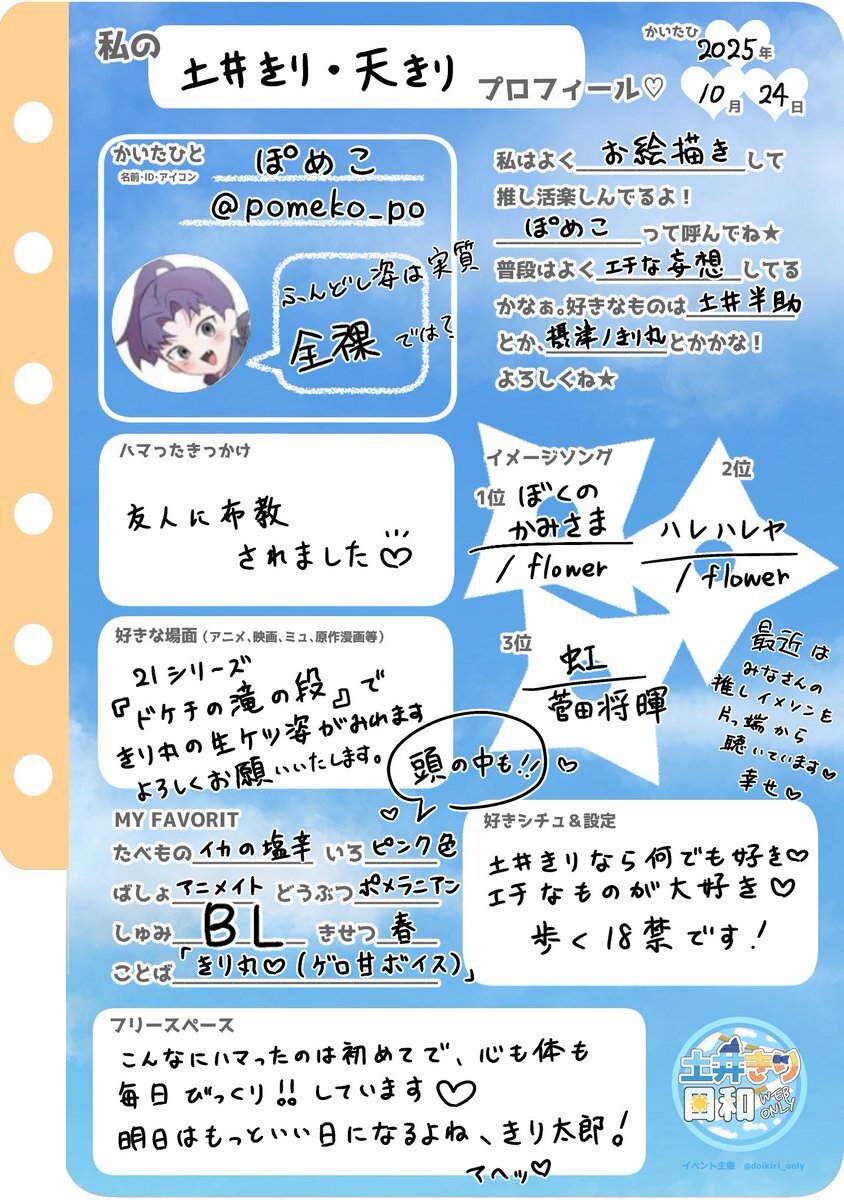 私の
土井きり・天きり
プロフィール♡
かいたひ
2025年
10月24日
かいたひと
名前・ID・アイコン
ぽめこ
@pomeko_po
ふんどし姿は実質
全裸では?
私はよくお絵描きして
推し活楽しんでるよ！
ぽめこって呼んでね★
普段はよくエチな妄想してる
かなぁ。好きなものは土井半助
とか、摂津ノきり丸とかかな！
よろしくね★
ハマったきっかけ
友人に布教
されました♡
イメージソング
1位
ぼくの
かみさま
/flower
2位
ハレハレヤ
/flower
3位
虹
菅田将暉
最近は
みなさんの
推しイメソンを
片っ端から
聴いています♡
幸せ♡
好きな場面（アニメ、映画、ミュ、原作漫画等）
21シリーズ
『ドケチの滝の段』で
きり丸の生ケツ姿がみれます
よろしくお願いいたします。
頭の中も!!♡
MY FAVORIT
たべものイカの塩辛 いろピンク色
ばしょアニメイト どうぶつポメラニアン
しゅみBL きせつ春
ことば「きり丸♡(ゲロ甘ボイス)」
好きシチュ＆設定
土井きりなら何でも好き♡
エチなものが大好き♡
歩く18禁です！
フリースペース
こんなにハマったのは初めてで、心も体も
毎日びっくり!!しています♡
明日はもっといい日になるよね、きり太郎！
アヘッ♡
土井きり
日和
WEB
ONLY
イベント主催 @doikiri_only